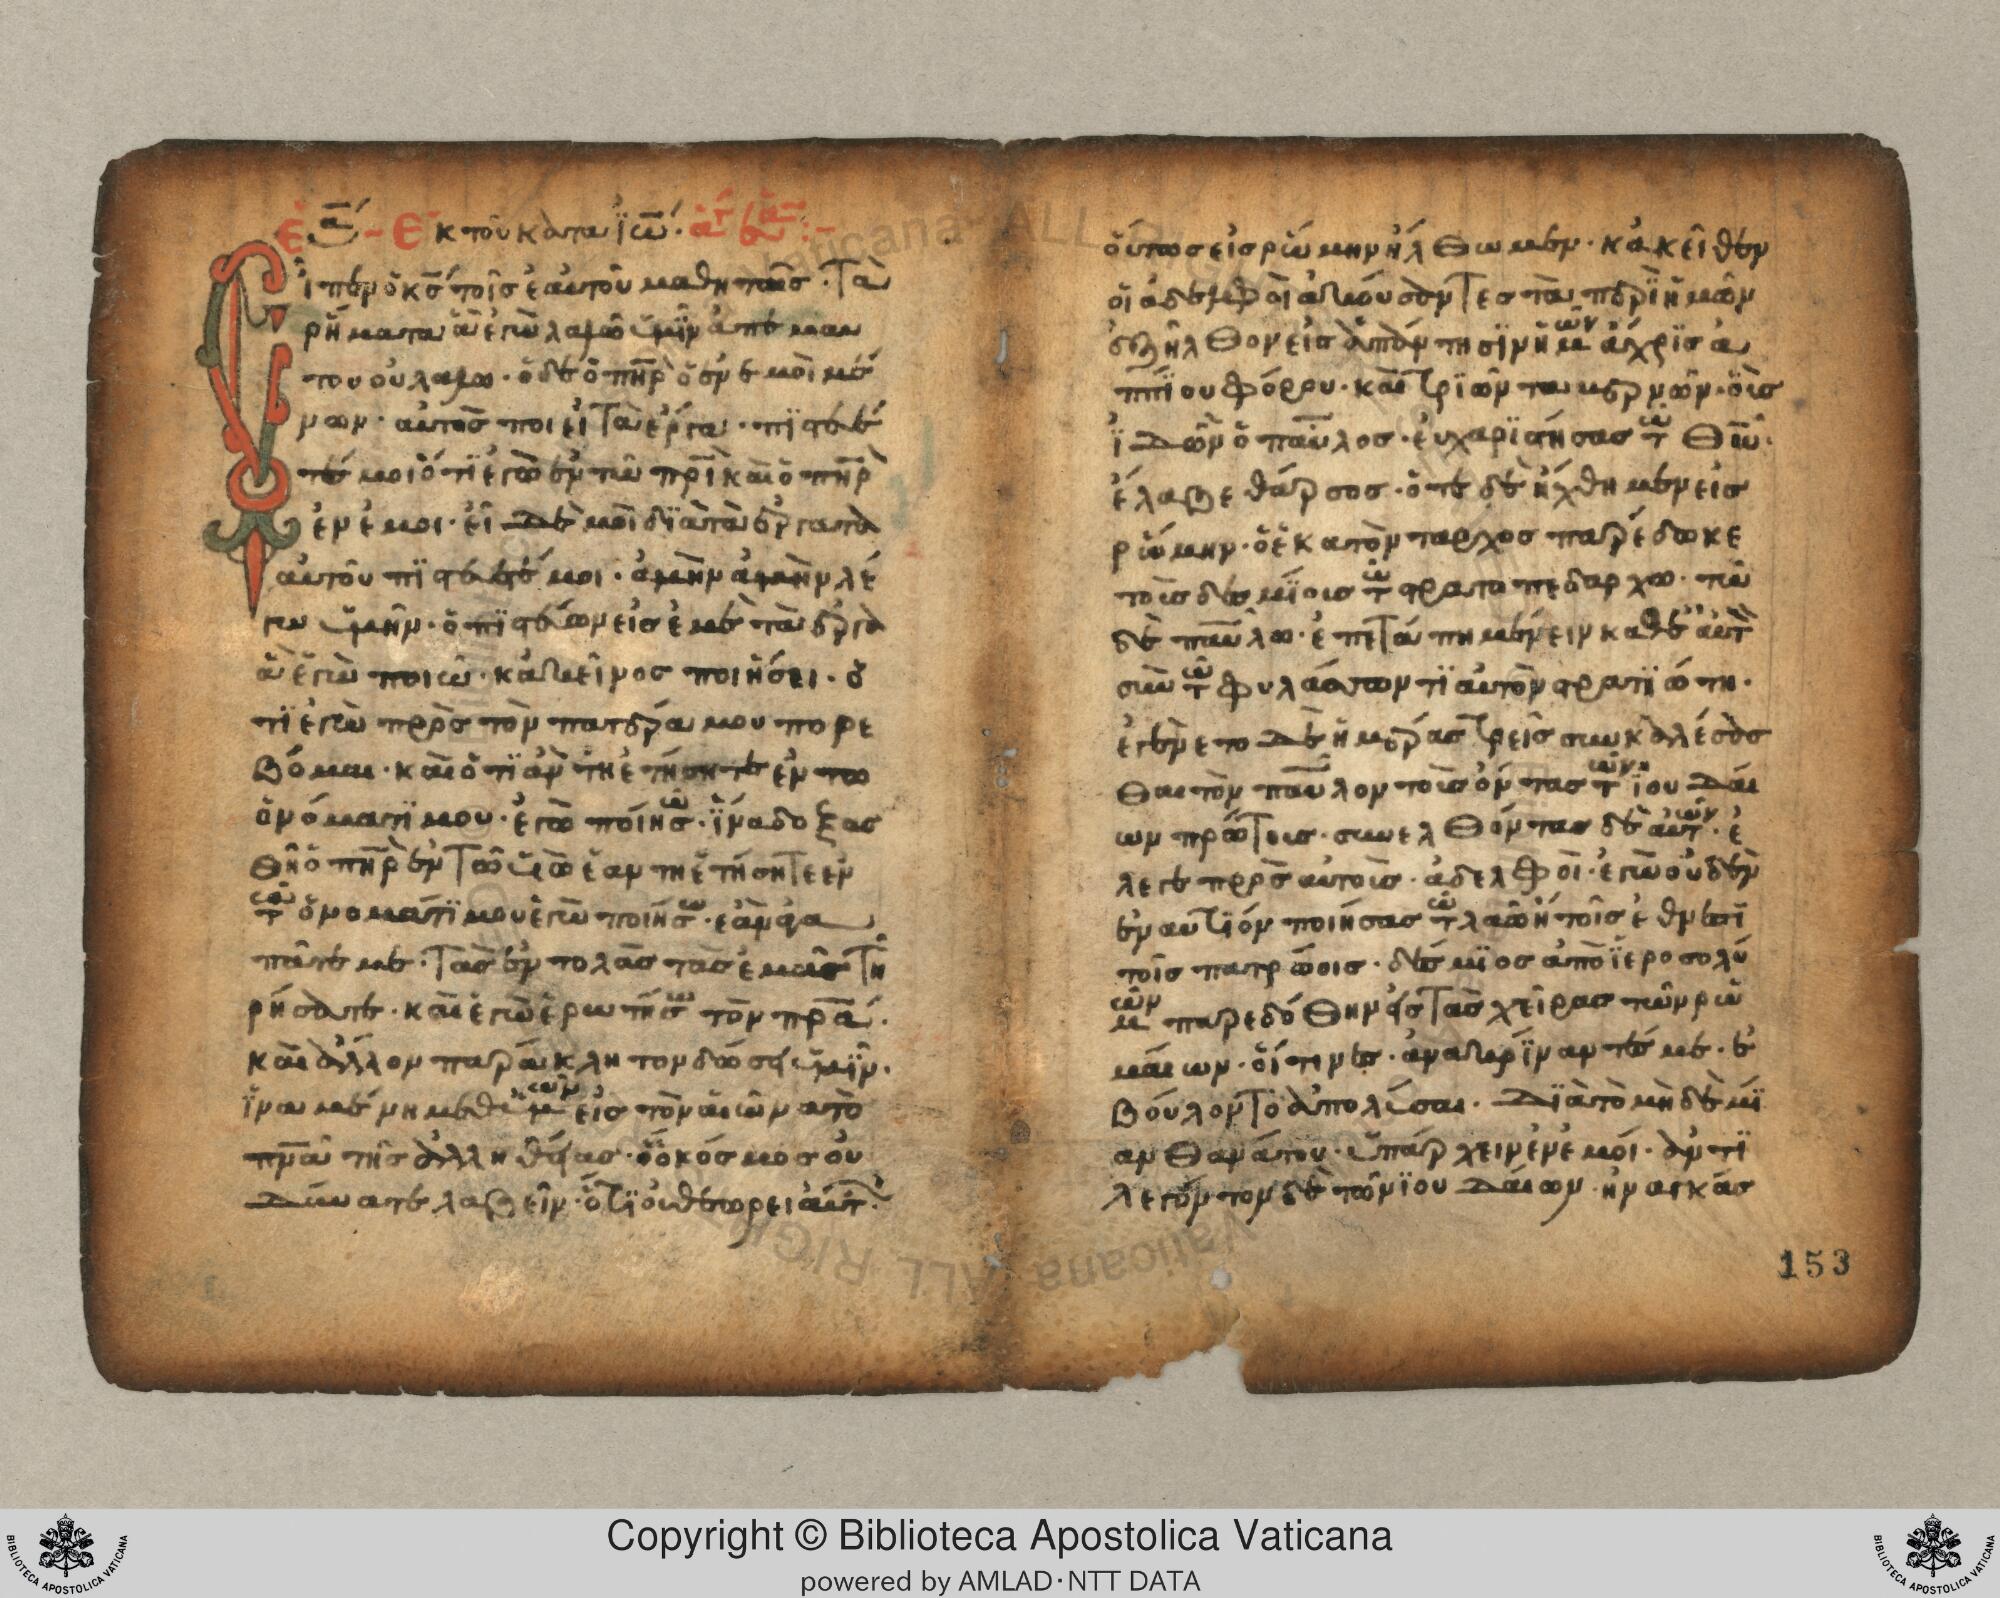 Εὐα – Ἐκ τοῦ κατα Ἰω.
ἶπεν ὁ κς τοῖς ἑαυτοῦ μαθηταῖς. Τὰ
ρήματα ἃ ἐγὼ λαλῶ ὑμῖν ἀπ ἐμαυ
του οὐ λαλω. ὁ δὲ ὁ πηρ ὁ ἐν ἐμοὶ μέ
νων. αὐτὸς ποιεῖ τὰ ἔργα. πιστεύ
τέ μοι ὅτι ἐγὼ ἐν τῶ πρι καὶ ὁ πηρ
ἐν ἐμοι. εἰ δὲ μὴ διὰ τὰ ἔργα τὰ
αὐτοῦ πιστεύετέ μοι. ἀμὴν ἀμὴν λέ
γω ὑμῖν. ὁ πιστεύων εἰς ἐμὲ τὰ ἔργα
ἃ ἐγὼ ποιῶ. κἀκεῖνος ποιήσει. ὅ
τι ἐγὼ πρὸς τὸν πατέρα μου πορε
βόμαι. καὶ ὅτι ἂν τηἐτήσητε ἐν τω
ὀνόματί μου. ἐγὼ ποιήσω. ἵνα δοξας
θῆ ὁ πηρ ἐν τῶ υἱῶ ἐάν τηἐτήσητε ἐν
τῶ ὀνοματί μου ἐγὼ ποιήσω. ἐὰν ἀγα
πᾶτε με. τὰς ἐντολὰς τὰς ἐμὰς τη
ρήσατε. καὶ ἐγὼ ἐρωτήσω τὸν πρα.
καὶ ἄλλον παράκλητον δώσει ὑμῖν.
ἵνα μένη μεθ ὑμῶν εἰς τὸν αἰῶνα τὸ
πνα τῆς ἀλληθείας. ὃ ὁ κόσμος οὐ
δύναται λαβεῖν. ὅτι οὐ θεωρεῖ αὐτ.
οὕτως εἰς ρώμην ἤλθωμεν. κἀκεῖθεν
οἱ ἀδελφοὶ ἀκούσαντες τὰ περὶ ἡμῶν
ἐξῆλθον εἰς ἀπάντησιν ἡμῶν ἄχρις ἀ
ππίου φόρου. καὶ τριῶν ταυερνῶν. οὓς
ἰδὼν ὁ παῦλος. εὐχαριστήσας τῶ Θῶ.
ἔλαβε θάρσος. ὅτε δὲ ἤχθημεν εἰς
ρώμην. ὁ ἑκατόνταρχος παρέδωκε
τοὺς δεσμίους τῶ στρατοπεδάρχω. τῶ
δὲ παύλω. ἐπετάπη μένειν καθ ἑαυτ
σὺν τῶ φυλάσσοντι αὐτὸν στρατιώτη.
ἐγένετο δὲ ἡμέρας τρεῖς συνκαλέσας
θαι τὸν παῦλον τοὺς ὄντας τῶν ἰουδαί
ων πρώτους. συνελθόντας δὲ αὐτῶν. ἔ
λεγε πρὸς αὐτοὺς. ἀδελφοὶ. ἐγὼ οὐδὲν
ἐναντίον ποιήσας τῶ λαῶ ἢ τοῖς ἔθνεσι
τοῖς πατρώοις. δέσμιος ἀπὸ ἱεροσολύ
μων παρεδόθην εἰς τὰς χεῖρας τῶν ρω
μαίων. οἵτινες. ἀνακρίναντές με. ἐ
βούλοντο ἀπολύσαι. διὰ τὸ μηδὲ μί
αν θανάτου. ὑπάρχειν ἐν ἐμοί. ἀντι
λεγόντον δὲ τῶν ἰουδαίων. ἠναγκάσ
153
Copyright © Biblioteca Apostolica Vaticana
powered by AMLAD·NTT DATA
BIBLIOTECA APOSTOLICA VATICANA
BIBLIOTECA APOSTOLICA VATICANA